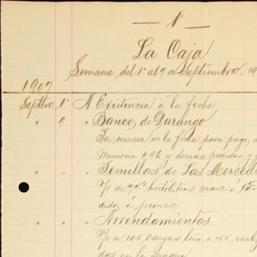 — 1 —
La Caja
Semana del 1º al 7 de Septiembre, 19
1907
Septbre 1º A Existencia á la fecha
" 7 " Banco de Durango
Su remesa de la fecha para pago de
Memoria 496 y demas
" " " Semillas de Las Mercedes
V/ de 74½ hectolitros maiz á 15
dido, á peones
" " " Arrendamientos
V/ a 105 cargas leña a 4
dos en la